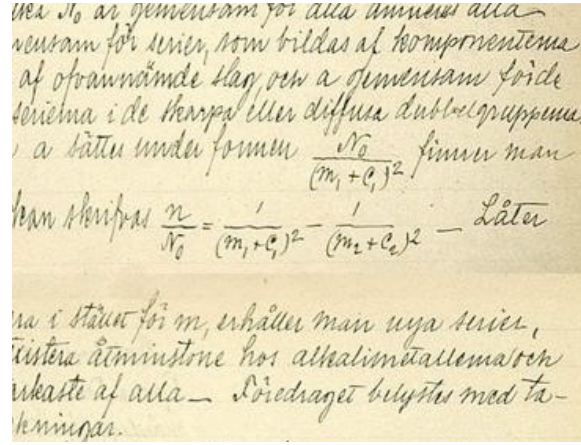 N₀ är gemensam för alla ämnens alla
gemensam för serier, som bildas af komponenterna
af ofvannämde slag, och a gemensam för de
serierna i de skarpa eller diffusa dubbelgrupperna
, a sättes under formen N₀/(m₁ + c₁)² finner man
kan skrifvas n/N₀ = 1/(m₁+c₁)² - 1/(m₂+c₂)² — Låter
i stället för m, erhåller man nya serier,
existera åtminstone hos alkalimetallerna och
af alla — Föredraget belystes med ta-